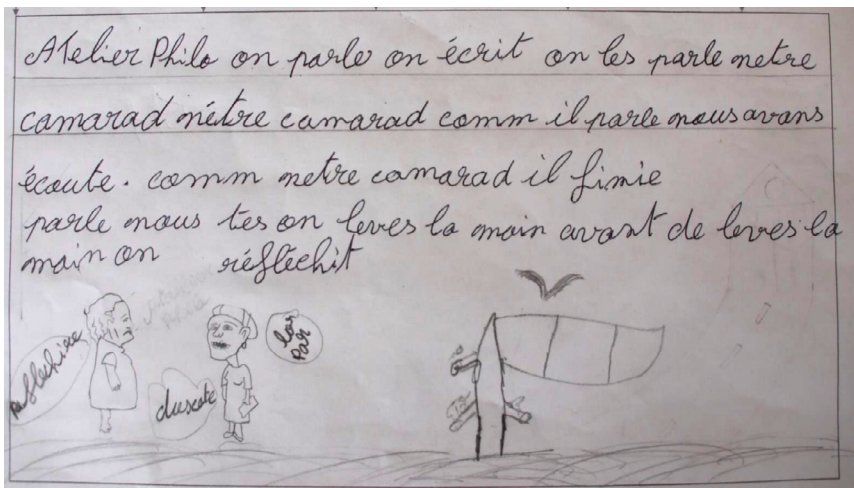 Atelier Philo on parle on écrit on les parle metre
camarad métre camarad comm il parle nous avans
écoute. comm metre camarad il finie
parle nous tes on leves la main avant de leves la
main on réfléchit
refléchire
duscote
lar
par